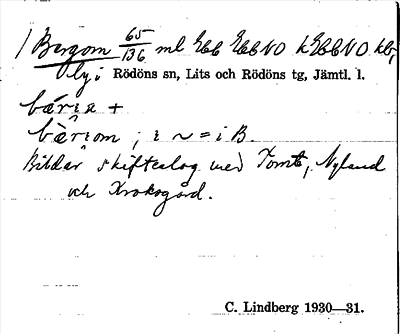 Bergom 65/136 ml Ebb EbbNO kEbbNO kbr,
by i Rödöns sn, Lits och Rödöns tg, Jämtl. l.
+
; i ~ = i B.
Bildar skifteslag med Tomte, Nyland
och Krokgård.
C. Lindberg 1930—31.